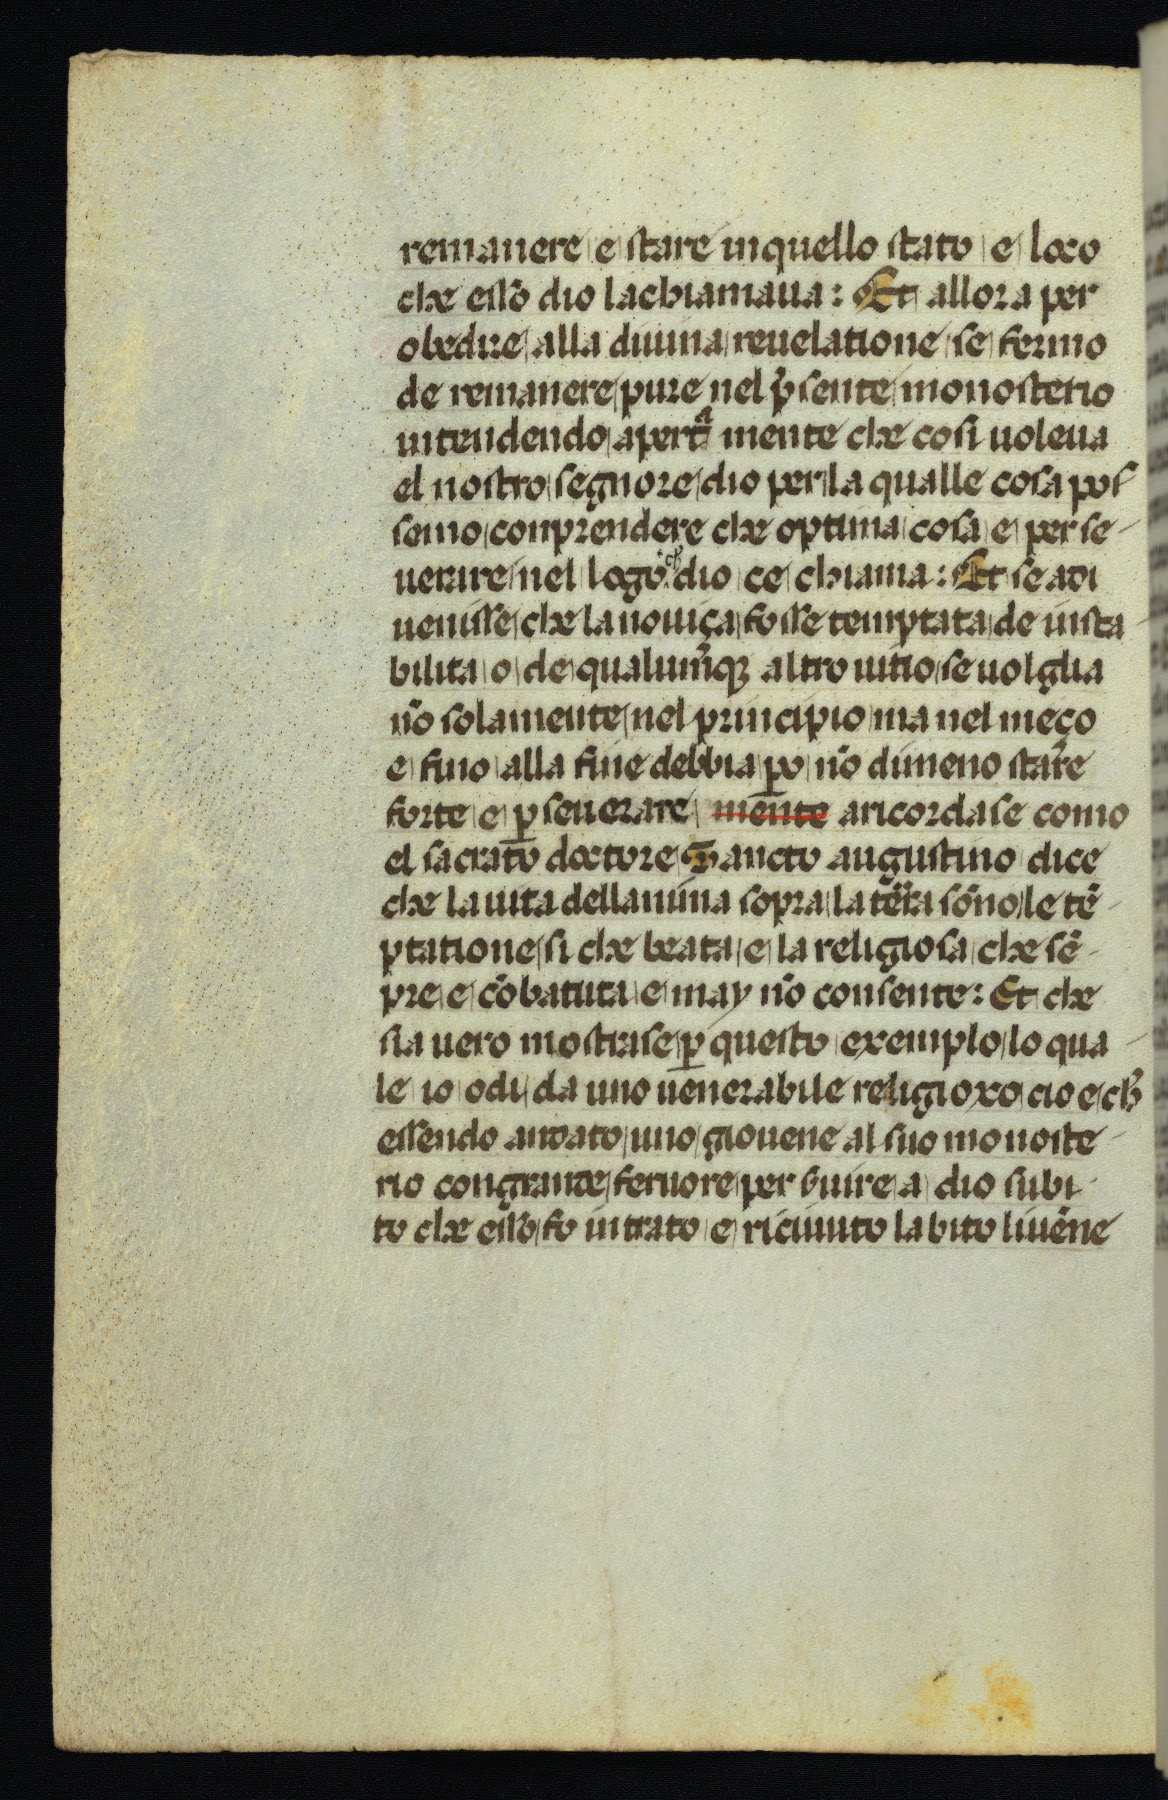 remanere e stare inquello stato e loco
che esso dio lachiamaua: Et allora per
obedire alla diuina reuelatione se fermo
de remanere pure nel p̄sente monosterio
intendendo apertᵃ mente che cosi uoleua
el nostro segnore dio per la qualle cosa pos
semo conprendere che optima cosa e per se-
uerare nel logo ch̄ dio ce chiama: Et se adi
uenisse che la nouiça fosse temptata de insta-
bilita o de qualun̄qꝫ altro uitio se uolglia
nō solamente nel principio ma nel meço
e fino alla fine debbia ꝑo nō dimeno stare
forte e ꝑseuerare mente aricordase como
el sacrato doctore Sancto augustino dice
che la uita dellanima sopra la tērra sōno le tē-
ptatione si che beata e la religiosa che sē-
pre e cōbatuta e may nō consente: Et che
sia uero mostrase ꝑ questo exemplo lo qua-
le io odi da uno uenerabile religioxo cio e ch̄
essendo andato uno giouene al suo monoste-
rio congrande feruore per s̄uire a dio subi-
to che esso fo intrato e riciuuto labito liuēne